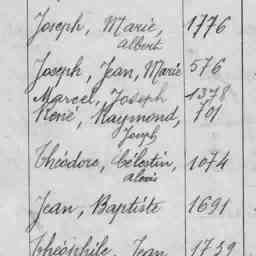 Joseph, Marie, 1776
Albert
Joseph, Jean, Marie 576
Marcel, Joseph 1378
René, Raymond, 701
Joseph
Théodore, Célestin, 1074
Alexis
Jean, Baptiste 1691
Théophile, Jean 1739